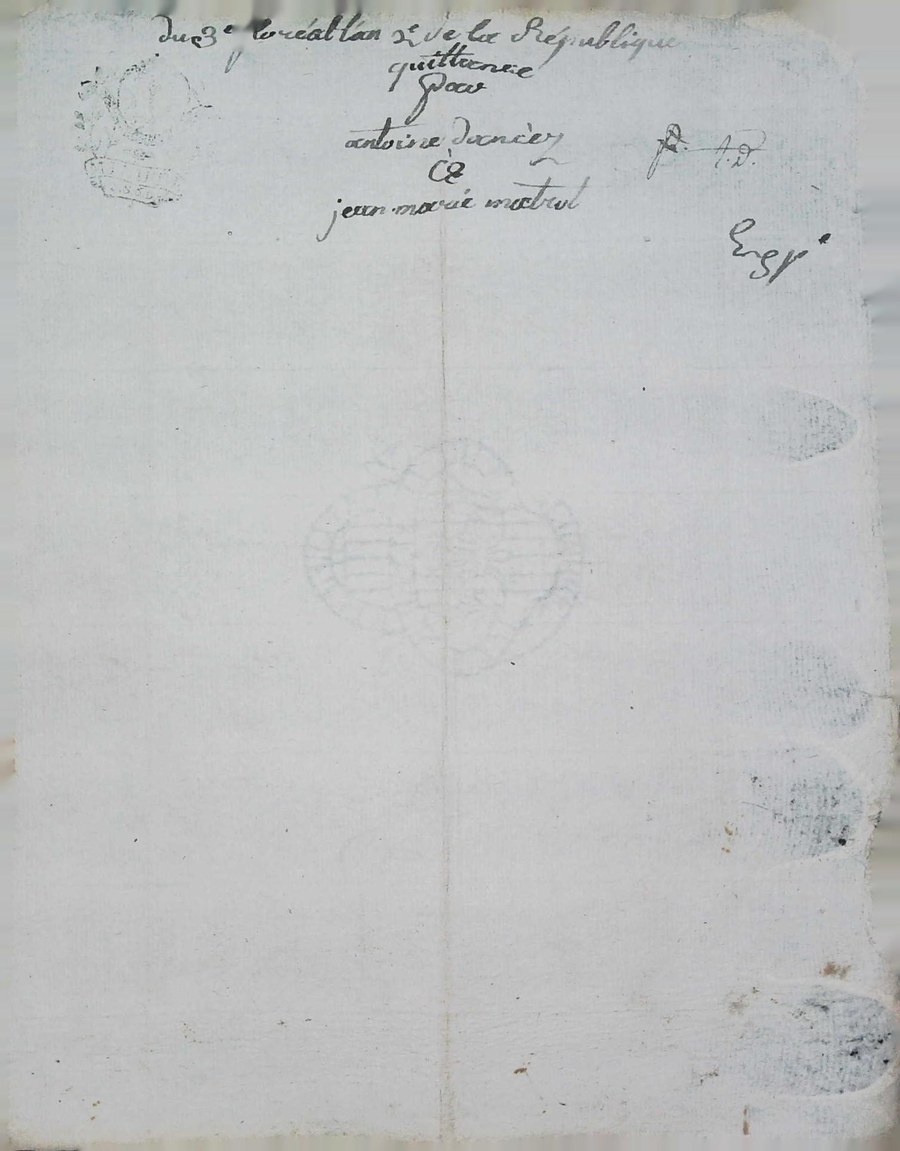 du 3e floréal l'an 2e de la République
quittance
pour
antoine dancèz
Ce
jean marie matrat